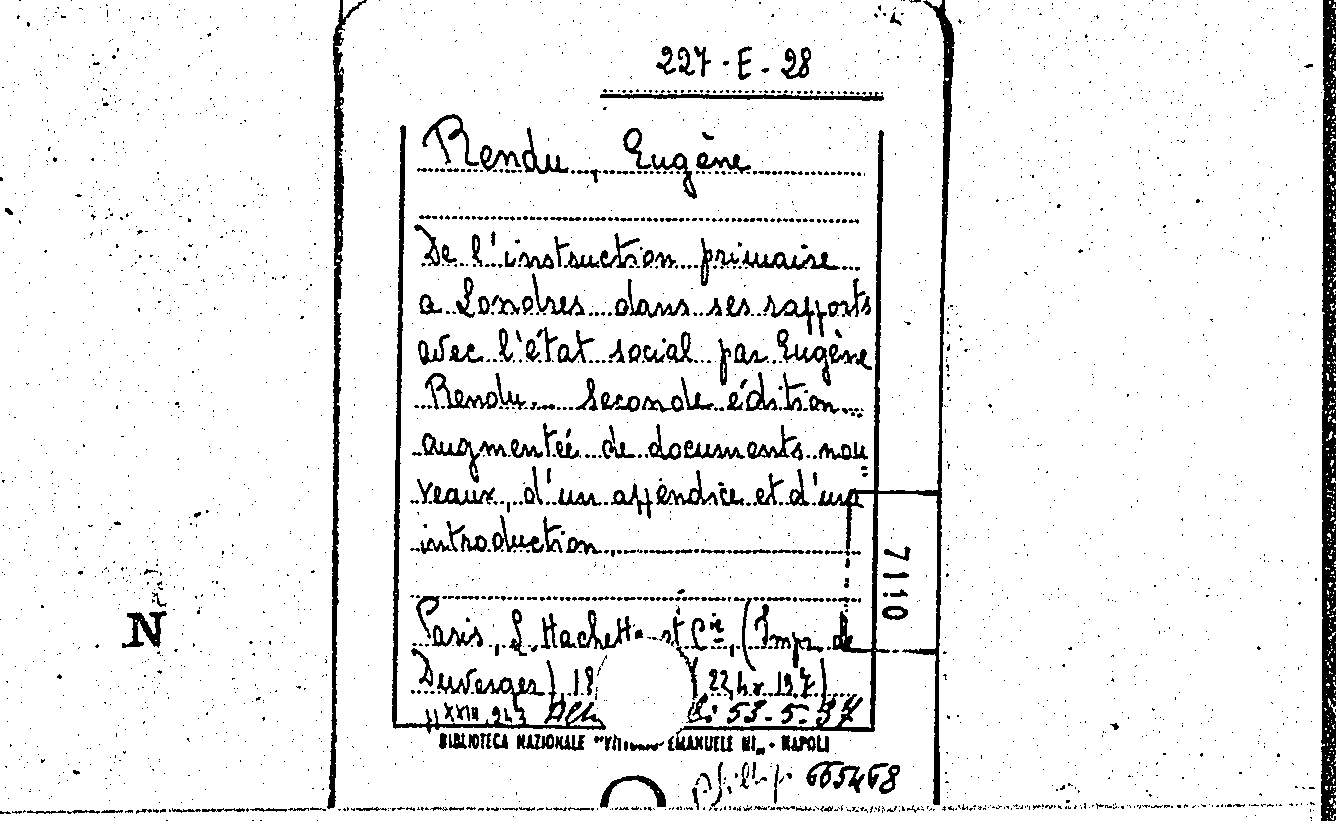 227-E-28
Rendu, Eugène
De l'instruction primaire
a Londres dans ses rapports
avec l'état social par Eugène
Rendu. Seconde édition
augmentée de documents nou=
veaux, d'un appendice et d'une
introduction.
7110
N
Paris, L. Hachette et Cie, (Impr. de
Duverger), 18 (22,4x 137)
53-5-37
BIBLIOTECA NAZIONALE "VITTORIO EMANUELE III" - NAPOLI
665468